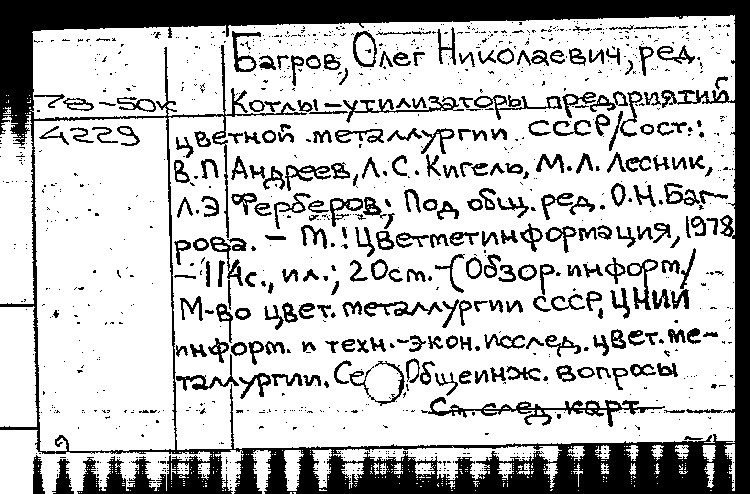 Багров, Олег Николаевич, ред.
78-50к Котлы-утилизаторы предприятий
4229 цветной металлургии СССР/Сост.:
В.П. Андреев, Л.С. Кигель, М.Л. Лесник,
Л.Э. Ферберов; Под общ. ред. О.Н. Баг-
рова. – М.: Цветметинформация, 1978.
– 114с., ил.; 20см. – (Обзор. информ./
М-во цвет. металлургии СССР, ЦНИИ
информ. и техн.-экон. исслед. цвет. ме-
таллургии. Се Общеинж. вопросы
См. след. карт.